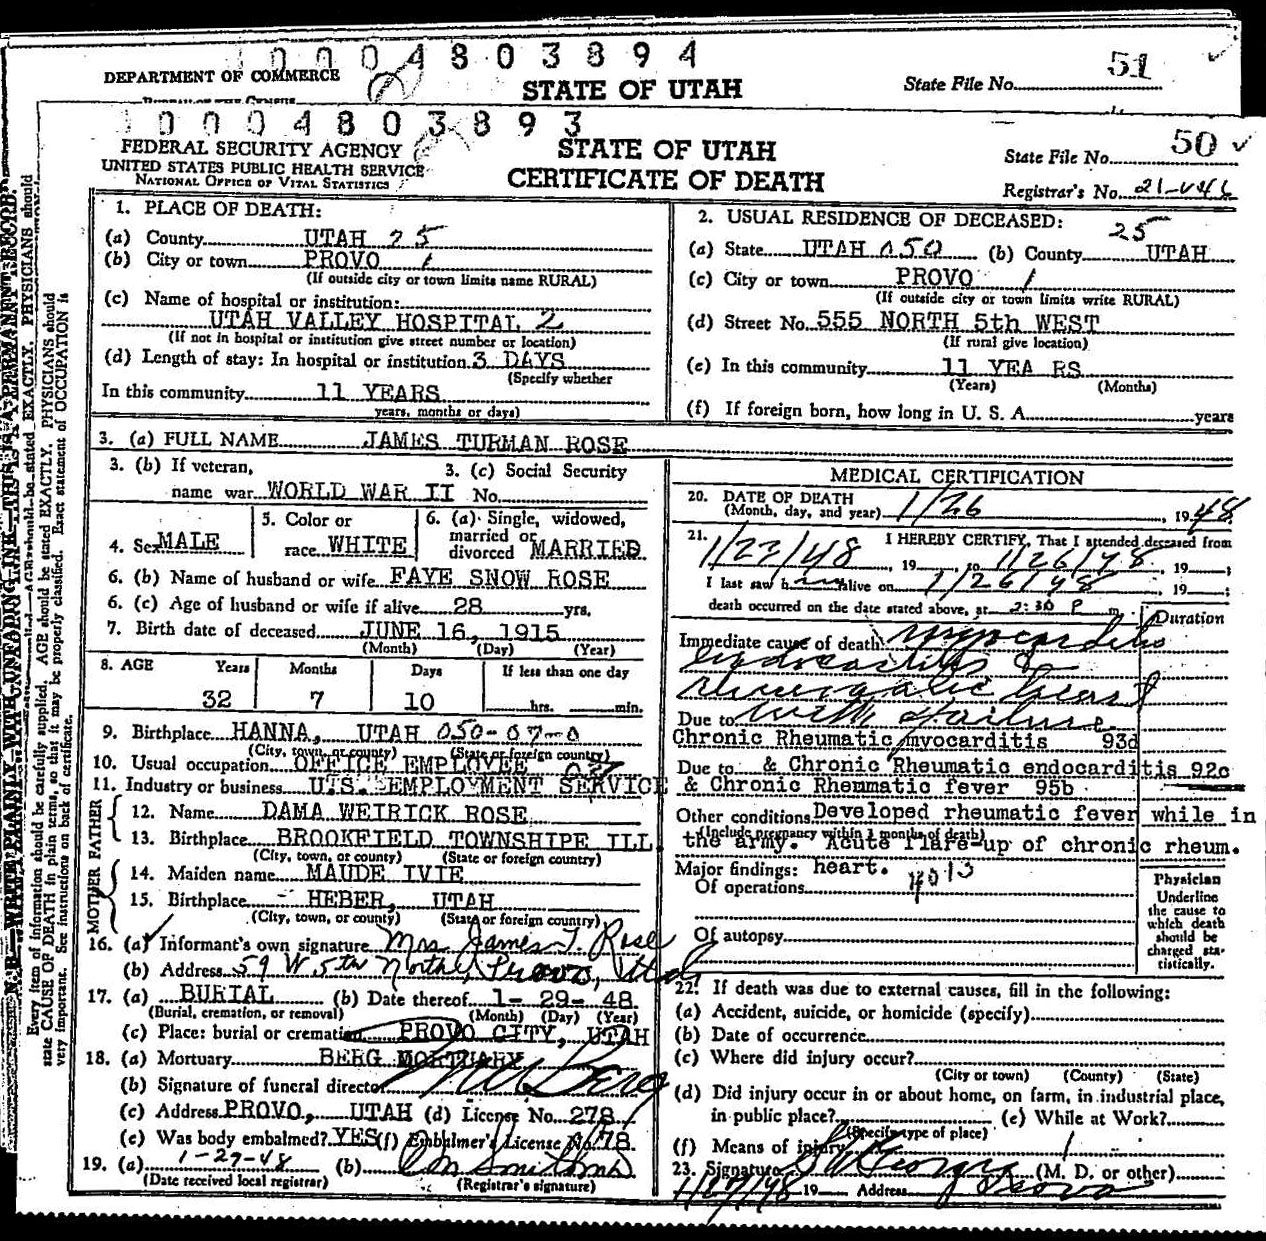 0004803894
DEPARTMENT OF COMMERCE
STATE OF UTAH
State File No. 51
0004803893
FEDERAL SECURITY AGENCY
UNITED STATES PUBLIC HEALTH SERVICE
NATIONAL OFFICE OF VITAL STATISTICS
STATE OF UTAH
CERTIFICATE OF DEATH
State File No. 50
Registrar's No. 21-
1. PLACE OF DEATH:
(a) County UTAH 25
(b) City or town PROVO 1
(If outside city or town limits name RURAL)
(c) Name of hospital or institution:
UTAH VALLEY HOSPITAL 2
(If not in hospital or institution give street number or location)
(d) Length of stay: In hospital or institution 3 DAYS
(Specify whether
In this community 11 YEARS
years, months or days)
2. USUAL RESIDENCE OF DECEASED:
25
(a) State UTAH 050 (b) County UTAH
(c) City or town PROVO 1
(If outside city or town limits write RURAL)
(d) Street No. 555 NORTH 5th WEST
(If rural give location)
(e) In this community 11 YEA RS
(Years) (Months)
(f) If foreign born, how long in U. S. A. years
3. (a) FULL NAME JAMES TURMAN ROSE
3. (b) If veteran, 3. (c) Social Security
name war WORLD WAR II No.
4. Sex MALE
5. Color or
race WHITE
6. (a) Single, widowed,
married or
divorced MARRIED
6. (b) Name of husband or wife FAYE SNOW ROSE
6. (c) Age of husband or wife if alive 28 yrs.
7. Birth date of deceased JUNE 16, 1915
(Month) (Day) (Year)
8. AGE Years Months Days If less than one day
32 7 10 hrs. min.
9. Birthplace HANNA, UTAH 050-07-0
(City, town, or county) (State or foreign country)
10. Usual occupation OFFICE EMPLOYEE
11. Industry or business U.S. EMPLOYMENT SERVICE
FATHER
12. Name DAMA WEIRICK ROSE
13. Birthplace BROOKFIELD TOWNSHIPE ILL
(City, town, or county) (State or foreign country)
MOTHER
14. Maiden name MAUDE IVIE
15. Birthplace - HEBER, UTAH
(City, town, or county) (State or foreign country)
16. (a) Informant's own signature Mrs James T. Rose
(b) Address 59 W 5th North, Provo, Utah
17. (a) BURIAL (b) Date thereof 1- 29- 48
(Burial, cremation, or removal) (Month) (Day) (Year)
(c) Place: burial or cremation PROVO CITY, UTAH
18. (a) Mortuary BERG MORTUARY
(b) Signature of funeral director Berg
(c) Address PROVO, UTAH (d) License No. 278
(e) Was body embalmed? YES (f) Embalmer's License No. 78
19. (a) 1-29-48 (b)
(Date received local registrar) (Registrar's signature)
MEDICAL CERTIFICATION
20. DATE OF DEATH
(Month, day, and year) 1/26, 1948
21. I HEREBY CERTIFY, That I attended deceased from
1/22/48, 19 to 1/26/48, 19 ;
I last saw him alive on 1/26/48, 19 ;
death occurred on the date stated above, at 2:30 P m.
Duration
Immediate cause of death myocarditis
endocarditis &
rheumatic heart
Due to with failure
Chronic Rheumatic myocarditis 93d
Due to & Chronic Rheumatic endocarditis 92c
& Chronic Rheumatic fever 95b
Other conditions Developed rheumatic fever while in
(Include pregnancy within 3 months of death)
the army. Acute flare-up of chronic rheum.
Major findings: heart. 4013
Of operations
Of autopsy
Physician
Underline
the cause to
which death
should be
charged sta-
tistically.
22. If death was due to external causes, fill in the following:
(a) Accident, suicide, or homicide (specify)
(b) Date of occurrence
(c) Where did injury occur?
(City or town) (County) (State)
(d) Did injury occur in or about home, on farm, in industrial place,
in public place? (e) While at Work?
(Specify type of place)
(f) Means of injury
23. Signature (M. D. or other)
1/27/48 19 Address Provo
N.B.—WRITE PLAINLY WITH UNFADING INK—THIS IS A PERMANENT RECORD.
Every item of information should be carefully supplied. AGE should be stated EXACTLY. PHYSICIANS should
state CAUSE OF DEATH in plain terms, so that it may be properly classified. Exact statement of OCCUPATION is
very important. See instructions on back of certificate.